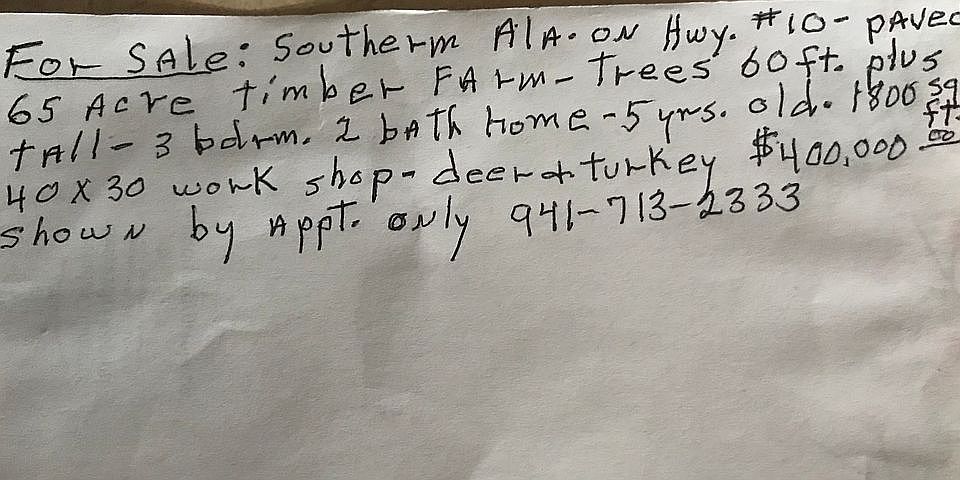 For Sale: Southern Ala. on Hwy. #10 - paved
65 Acre timber Farm - Trees 60ft. plus
tall - 3 bdrm. 2 bath Home - 5 yrs. old. 1800 sq ft.
40 x 30 work shop - deer & turkey $400,000.00
shown by Appt. only 941-713-2333